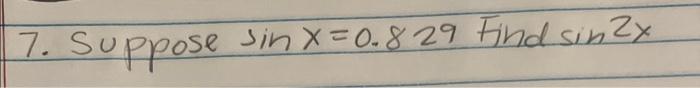 7. Suppose sin x = 0.829 Find sin 2x